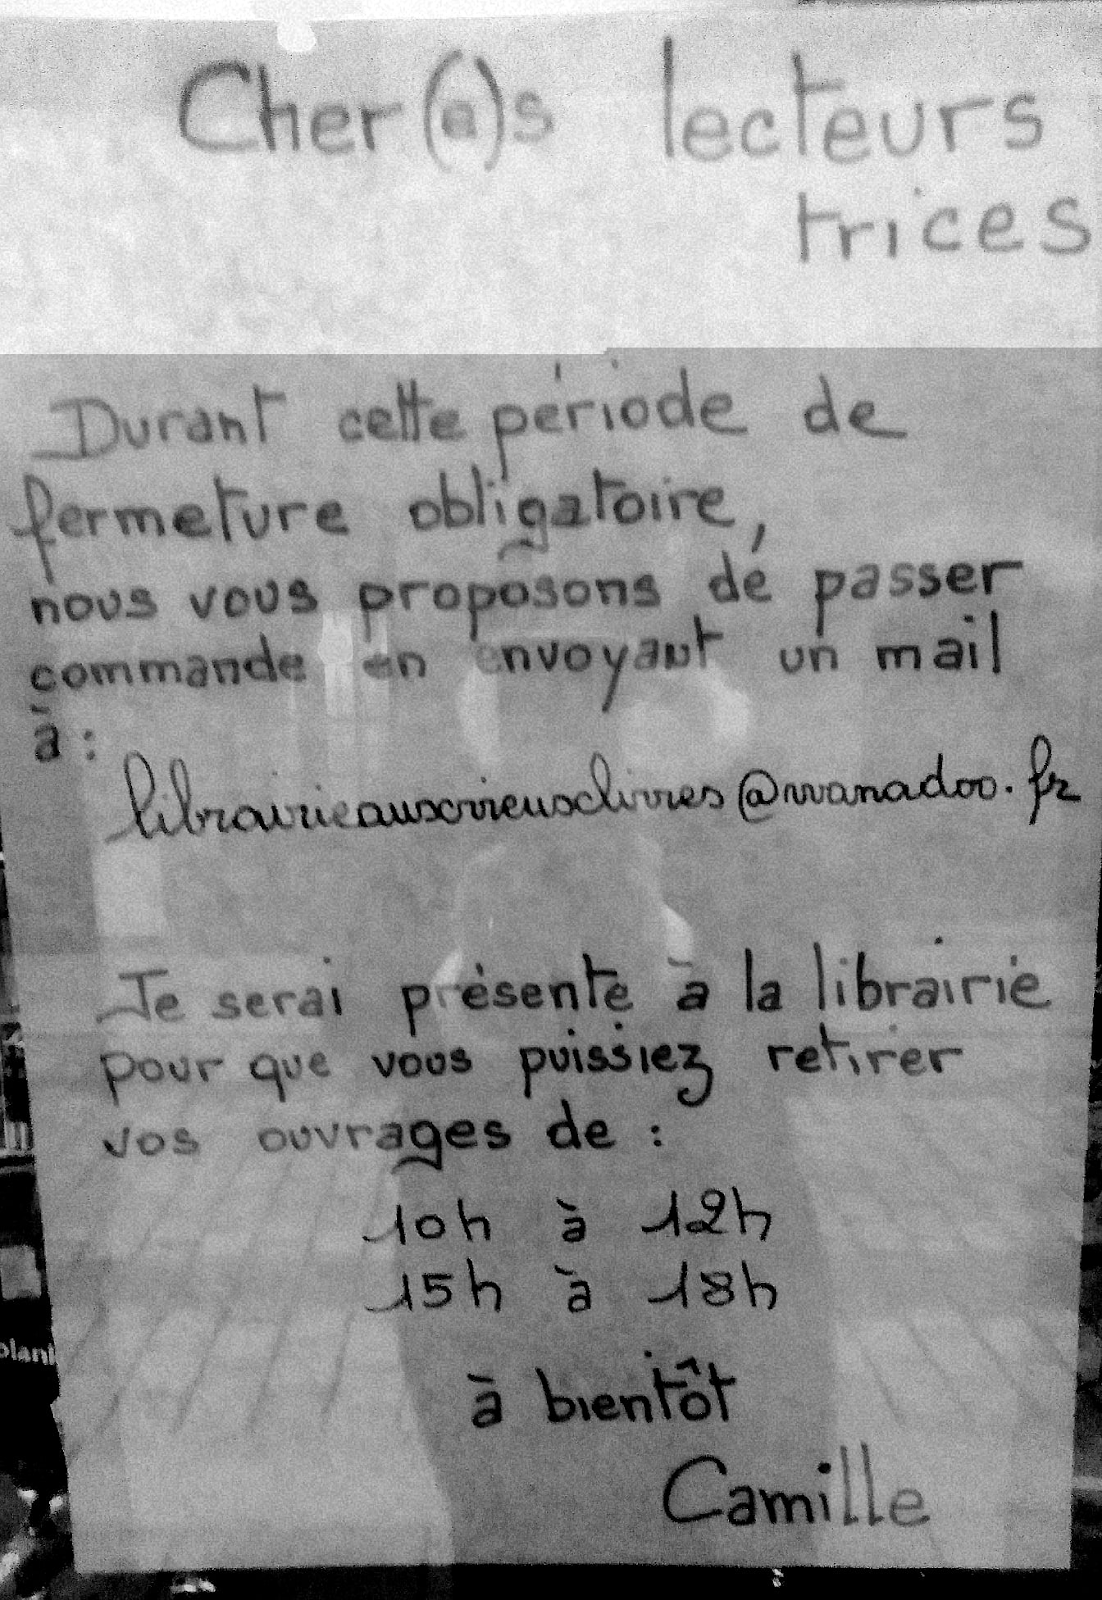 Cher(e)s lecteurs
trices
Durant cette période de
fermeture obligatoire,
nous vous proposons de passer
commande en envoyant un mail
à :
librairieauxvieuxlivres@wanadoo.fr
Je serai présente à la librairie
pour que vous puissiez retirer
vos ouvrages de :
10h à 12h
15h à 18h
à bientôt
Camille